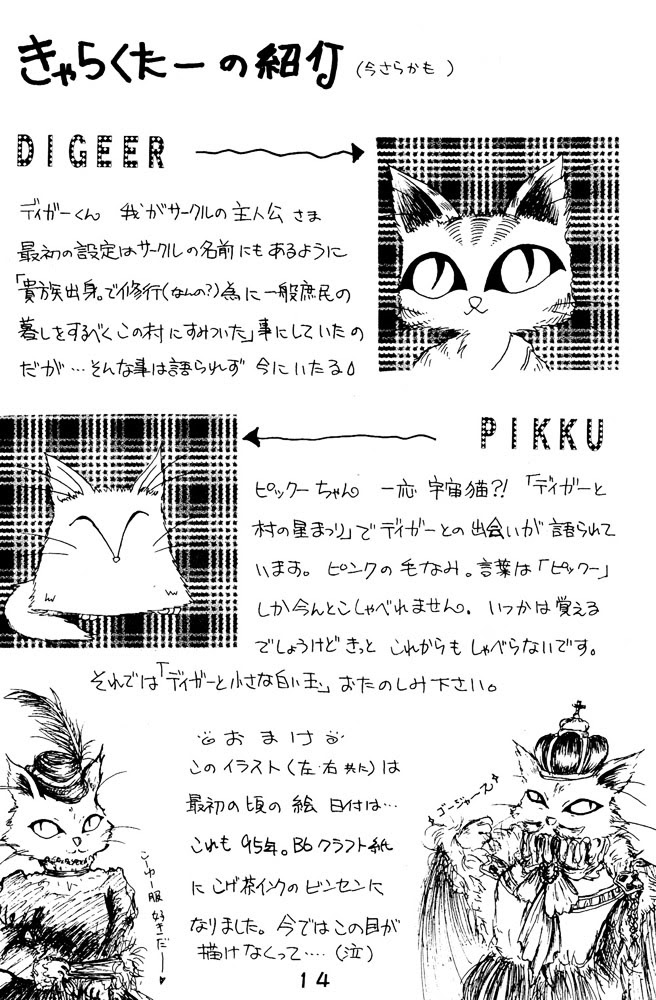 きゃらくたーの紹介 (今さらかも)
DIGEER
ディガーくん 我がサークルの主人公さま
最初の設定はサークルの名前にもあるように
「貴族出身。で修行(なんの?)為に一般庶民の
暮しをするべくこの村にすみついた」事にしていたの
だが…そんな事は語られず 今にいたる
PIKKU
ピックーちゃん 一応 宇宙猫?!「ディガーと
村の星まつり」でディガーとの出会いが語られて
います。ピンクの毛なみ。言葉は「ピックー」
しか今んとこしゃべれません。いつかは覚える
でしょうけどきっと これからもしゃべらないです。
それでは「ディガーと小さな白い玉」おたのしみ下さい。
おまけ
このイラスト(左・右共に)は
最初の頃の絵 日付は…
これも95年。B6クラフト紙
にこげ茶インクのビンセンに
なりました。今ではこの目が
描けなくって‥‥(泣)
こーゆー服好きだー♥
ゴージャース
14